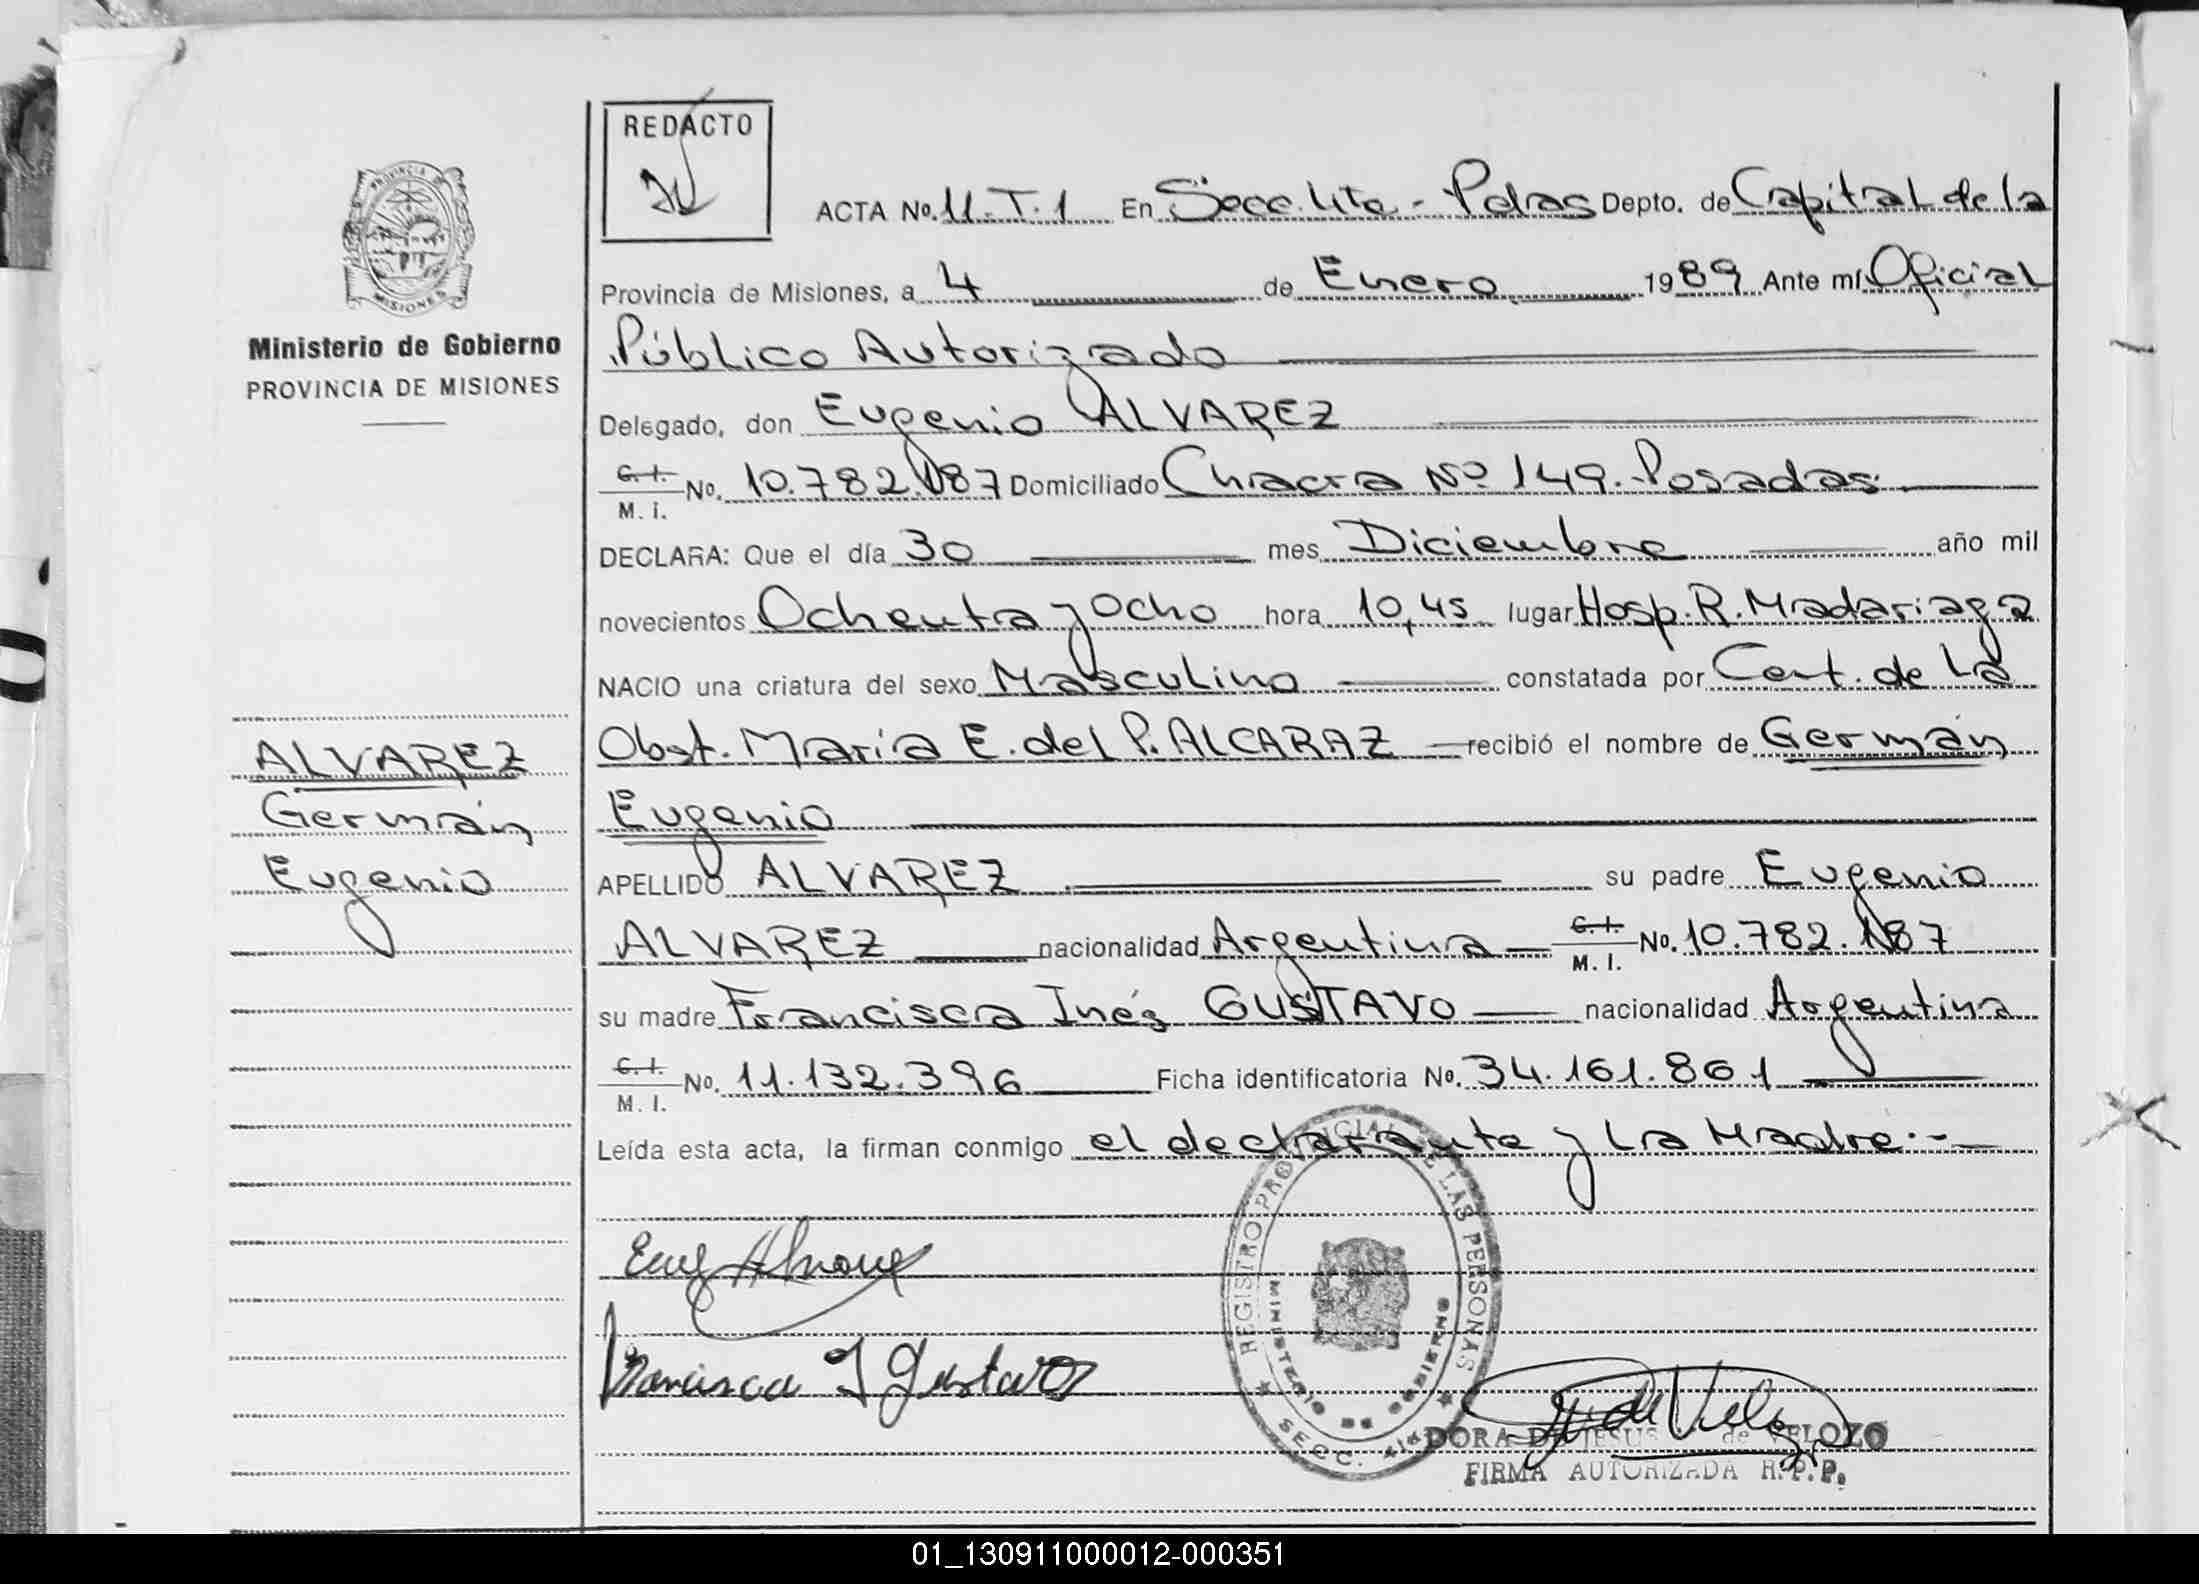 REDACTO
ACTA No. 11-T.1 En Secc. 4ta - Pdas Depto. de Capital de la
Provincia de Misiones, a 4 de Enero 1989 Ante mí Oficial
Público Autorizado
PROVINCIA DE
MISIONES
Ministerio de Gobierno
PROVINCIA DE MISIONES
Delegado, don Eugenio ALVAREZ
C. I. No. 10.782.187 Domiciliado Chacra Nº 149. Posadas
M. I.
DECLARA: Que el día 30 mes Diciembre año mil
novecientos Ochenta y Ocho hora 10,45 lugar Hosp. R. Madariaga
NACIO una criatura del sexo Masculino constatada por Cert. de La
Obst. María E. del P. ALCARAZ recibió el nombre de Germán
Eugenio
ALVAREZ
Germán
Eugenio
APELLIDO ALVAREZ su padre Eugenio
ALVAREZ nacionalidad Argentina C. I. No. 10.782.187
M. I.
su madre Francisca Inés GUSTAVO nacionalidad Argentina
C. I. No. 11.132.396 Ficha identificatoria No. 34.161.861
M. I.
Leída esta acta, la firman conmigo el declarante y La Madre.-
Francisca I Gustavo
REGISTRO PROVINCIAL DE LAS PERSONAS
MINISTERIO DE GOBIERNO
SECC. 4ta
DORA DE JESUS de VELOZO
FIRMA AUTORIZADA R.P.P.
01_130911000012-000351